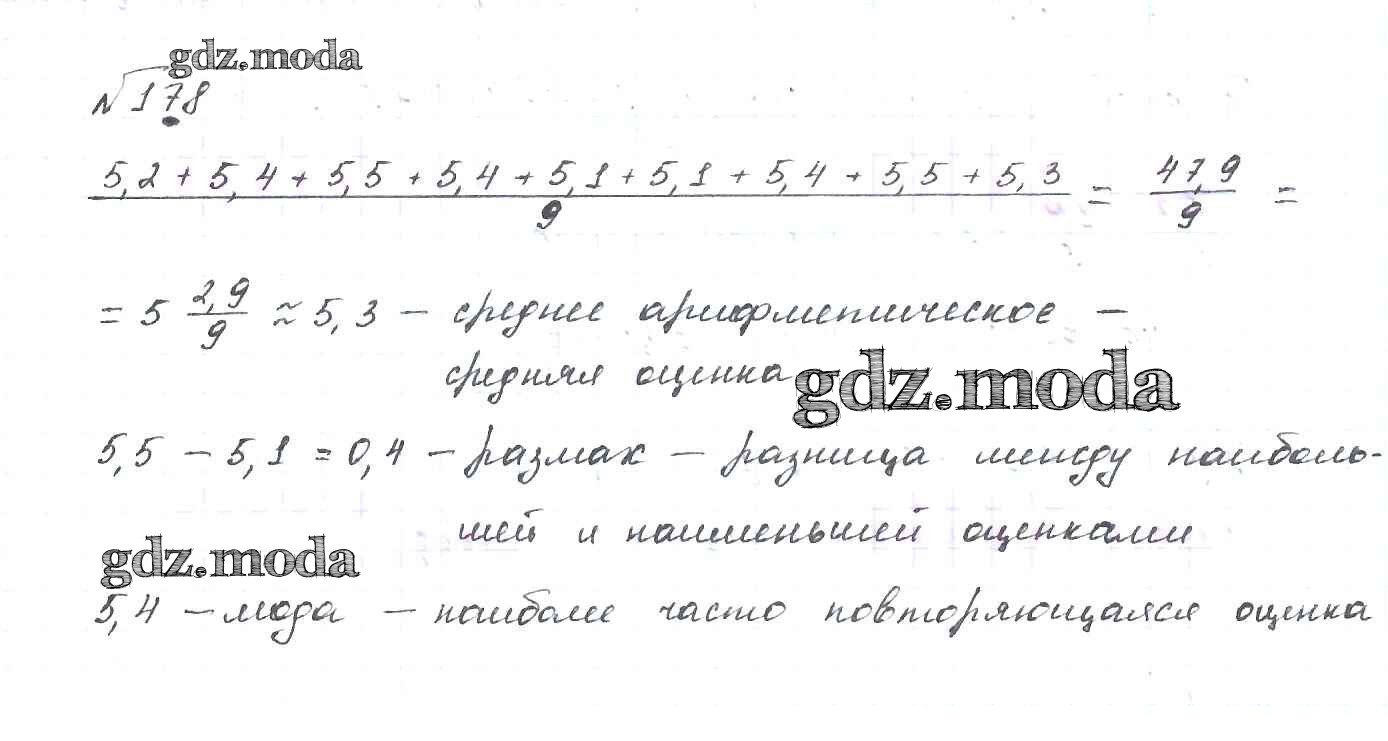 gdz.moda
№178
5,2 + 5,4 + 5,5 + 5,4 + 5,1 + 5,1 + 5,4 + 5,5 + 5,3 = 47,9 =
9 9
= 5 2,9/9 ≈ 5,3 – среднее арифметическое –
средняя оценка
gdz.moda
5,5 – 5,1 = 0,4 – размах – разница между наиболь-
шей и наименьшей оценками
gdz.moda
5,4 – мода – наиболее часто повторяющаяся оценка